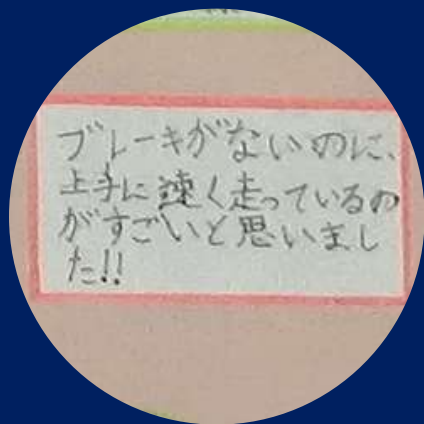 ブレーキがないのに、
上手に速く走っているの
がすごいと思いまし
た!!